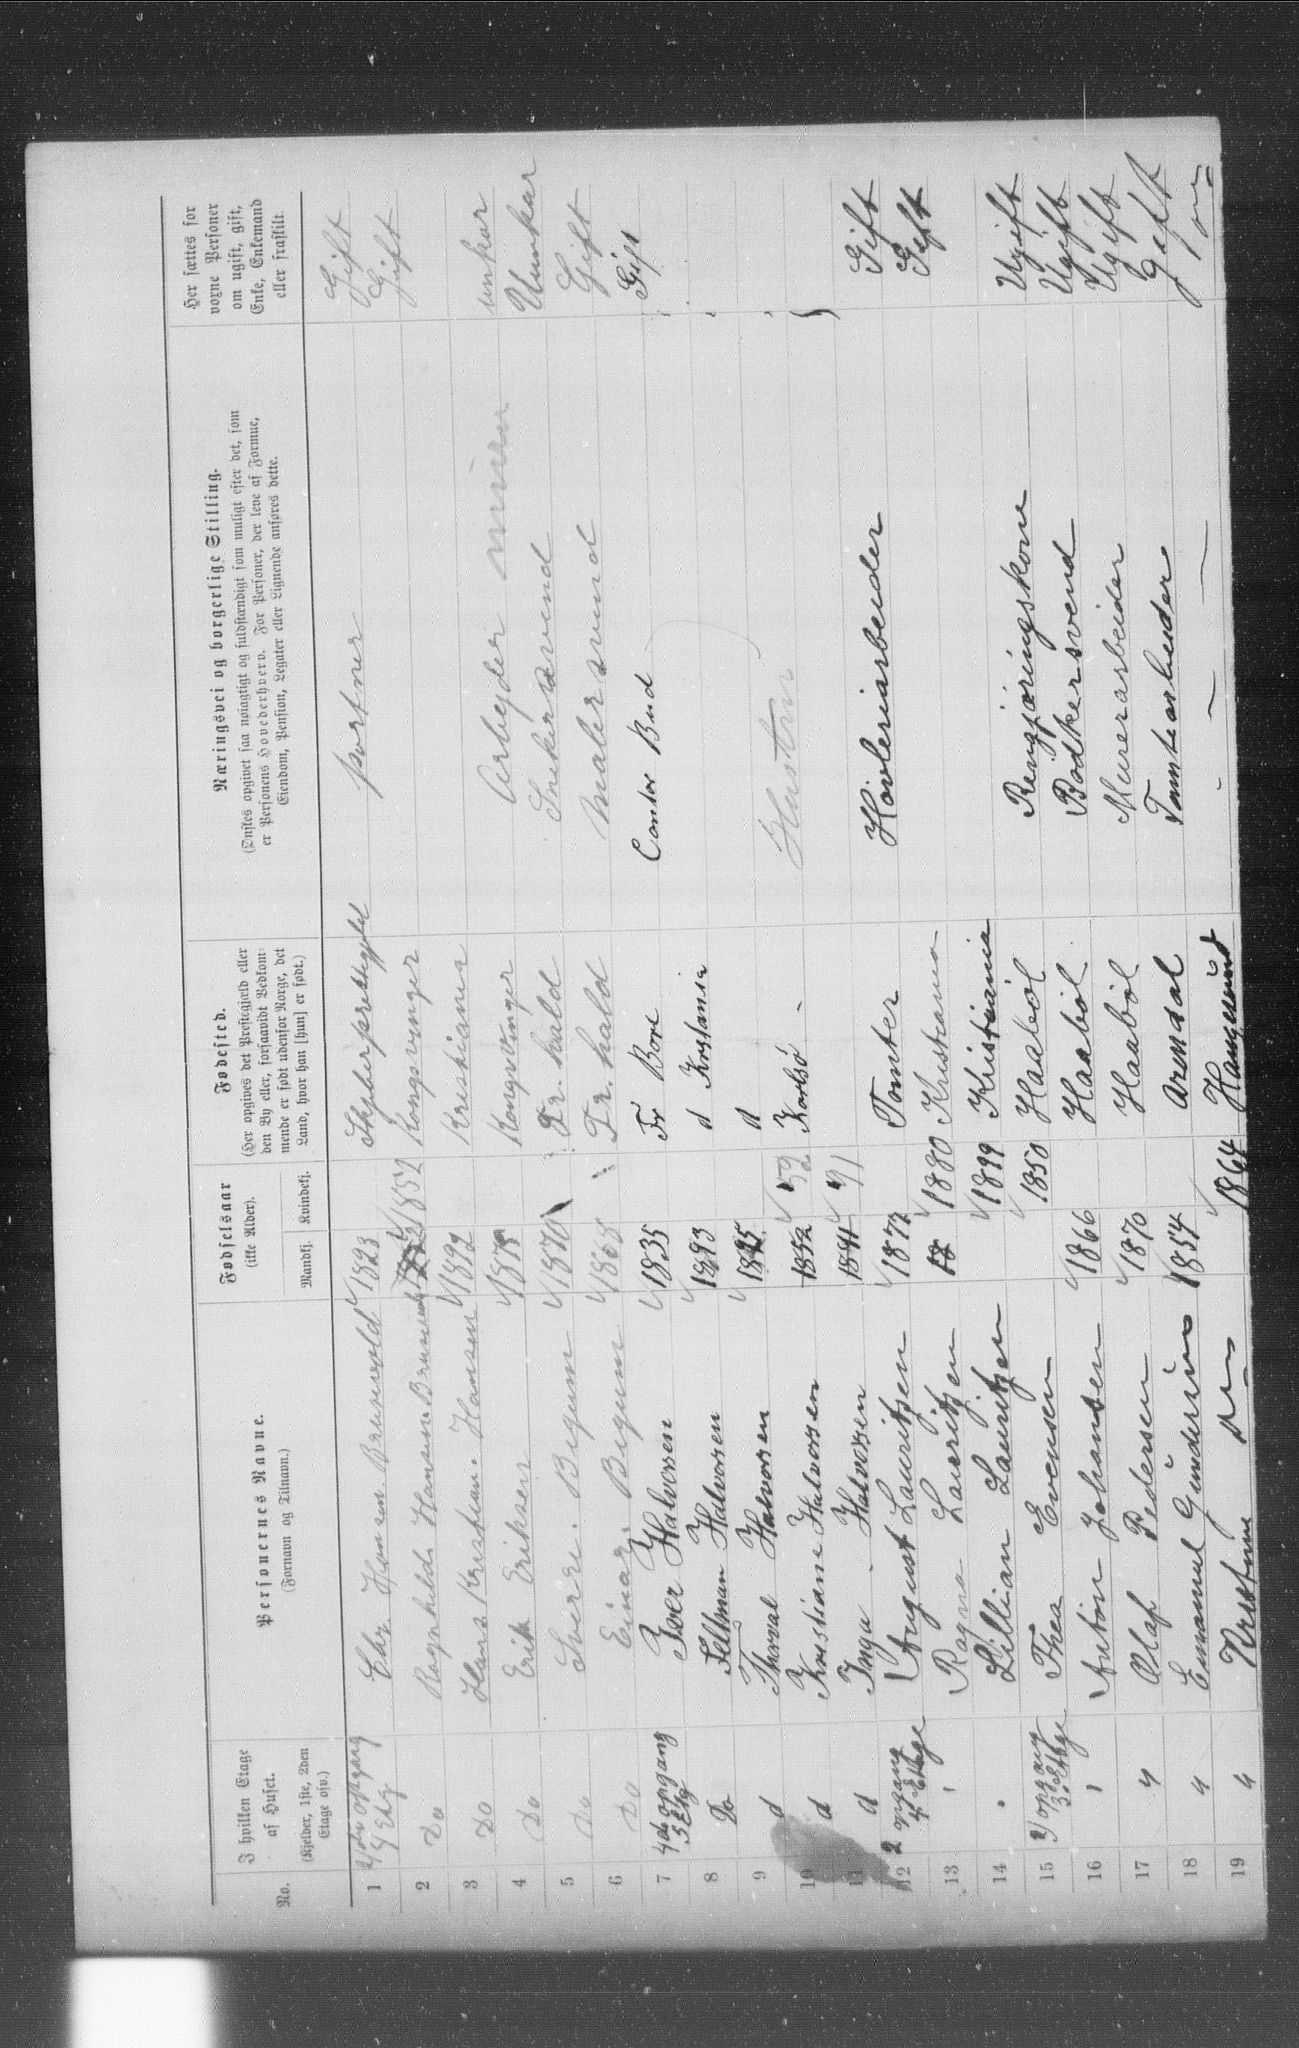 No.
I hvilken Etage
af Huset.
(Kjelder, 1ste, 2den
Etage osv.)
Personernes Navne.
(Fornavn og Tilnavn.)
Fødselsaar
(ikke Alder).
Mandkj. Kvindekj.
Fødested.
(Her opgives det Prestegjeld eller
den By eller, forsaavidt Vedkom-
mende er født udenfor Norge, det
Land, hvor han [hun] er født.)
Næringsvei og borgerlige Stilling.
(Ønskes opgivet saa nøiagtigt og fuldstændigt som muligt efter det, som
er Personens Hovederhverv. For Personer, der leve af Formue,
Eiendom, Pension, Legater eller Lignende anføres dette.
Her sættes for
voxne Personer
om ugift, gift,
Enke, Enkemand
eller fraskilt.
1 opgang 4 Etg Chr. Hansen Brunvold 1823 portner Gift
2 Do Ragnhild Hansen 1852 Kongsvinger Gift
3 Do Hans Kristian Hansen 1892 Kristiania
4 Do Erik Eriksen 1875 Kongsvinger Arbejder unkar
5 Do Sverre Begum 1870 Fr. hald Snekersvend Unnkar
6 Do Einar Begum 1868 Fr. hald malersvend Gift
7 opgang 3 Etg Iver Halvorsen 1835 Fr Contor Bud Gift
8 Do Feltman Halvorsen 1893 d Kristania
9 d Thorval Halvorsen 1895 d
10 d Kristiane Halvorsen 1852 Hustru
11 d Inga Halvorsen 1891 91
12 2 opgang 4 Etage August Lauritzen 1877 Tomter Høvleriarbeider Gift
13 Ragna Lauritzen 18 1880 Kristiania Gift
14 Lillian Lauritzen 1899 Kristiania
15 opgang 3 Etage Thea Evensen 1850 Haabøl Rengjøringskone Ugift
16 Anton Johansen 1866 Haabøl Bødkersvend Ugift
17 Olaf Pedersen 1870 Haabøl Murerarbeider Ugift
18 Emanuel Gundersen 1854 Arendal Tomtearbeider Gift
19 1864